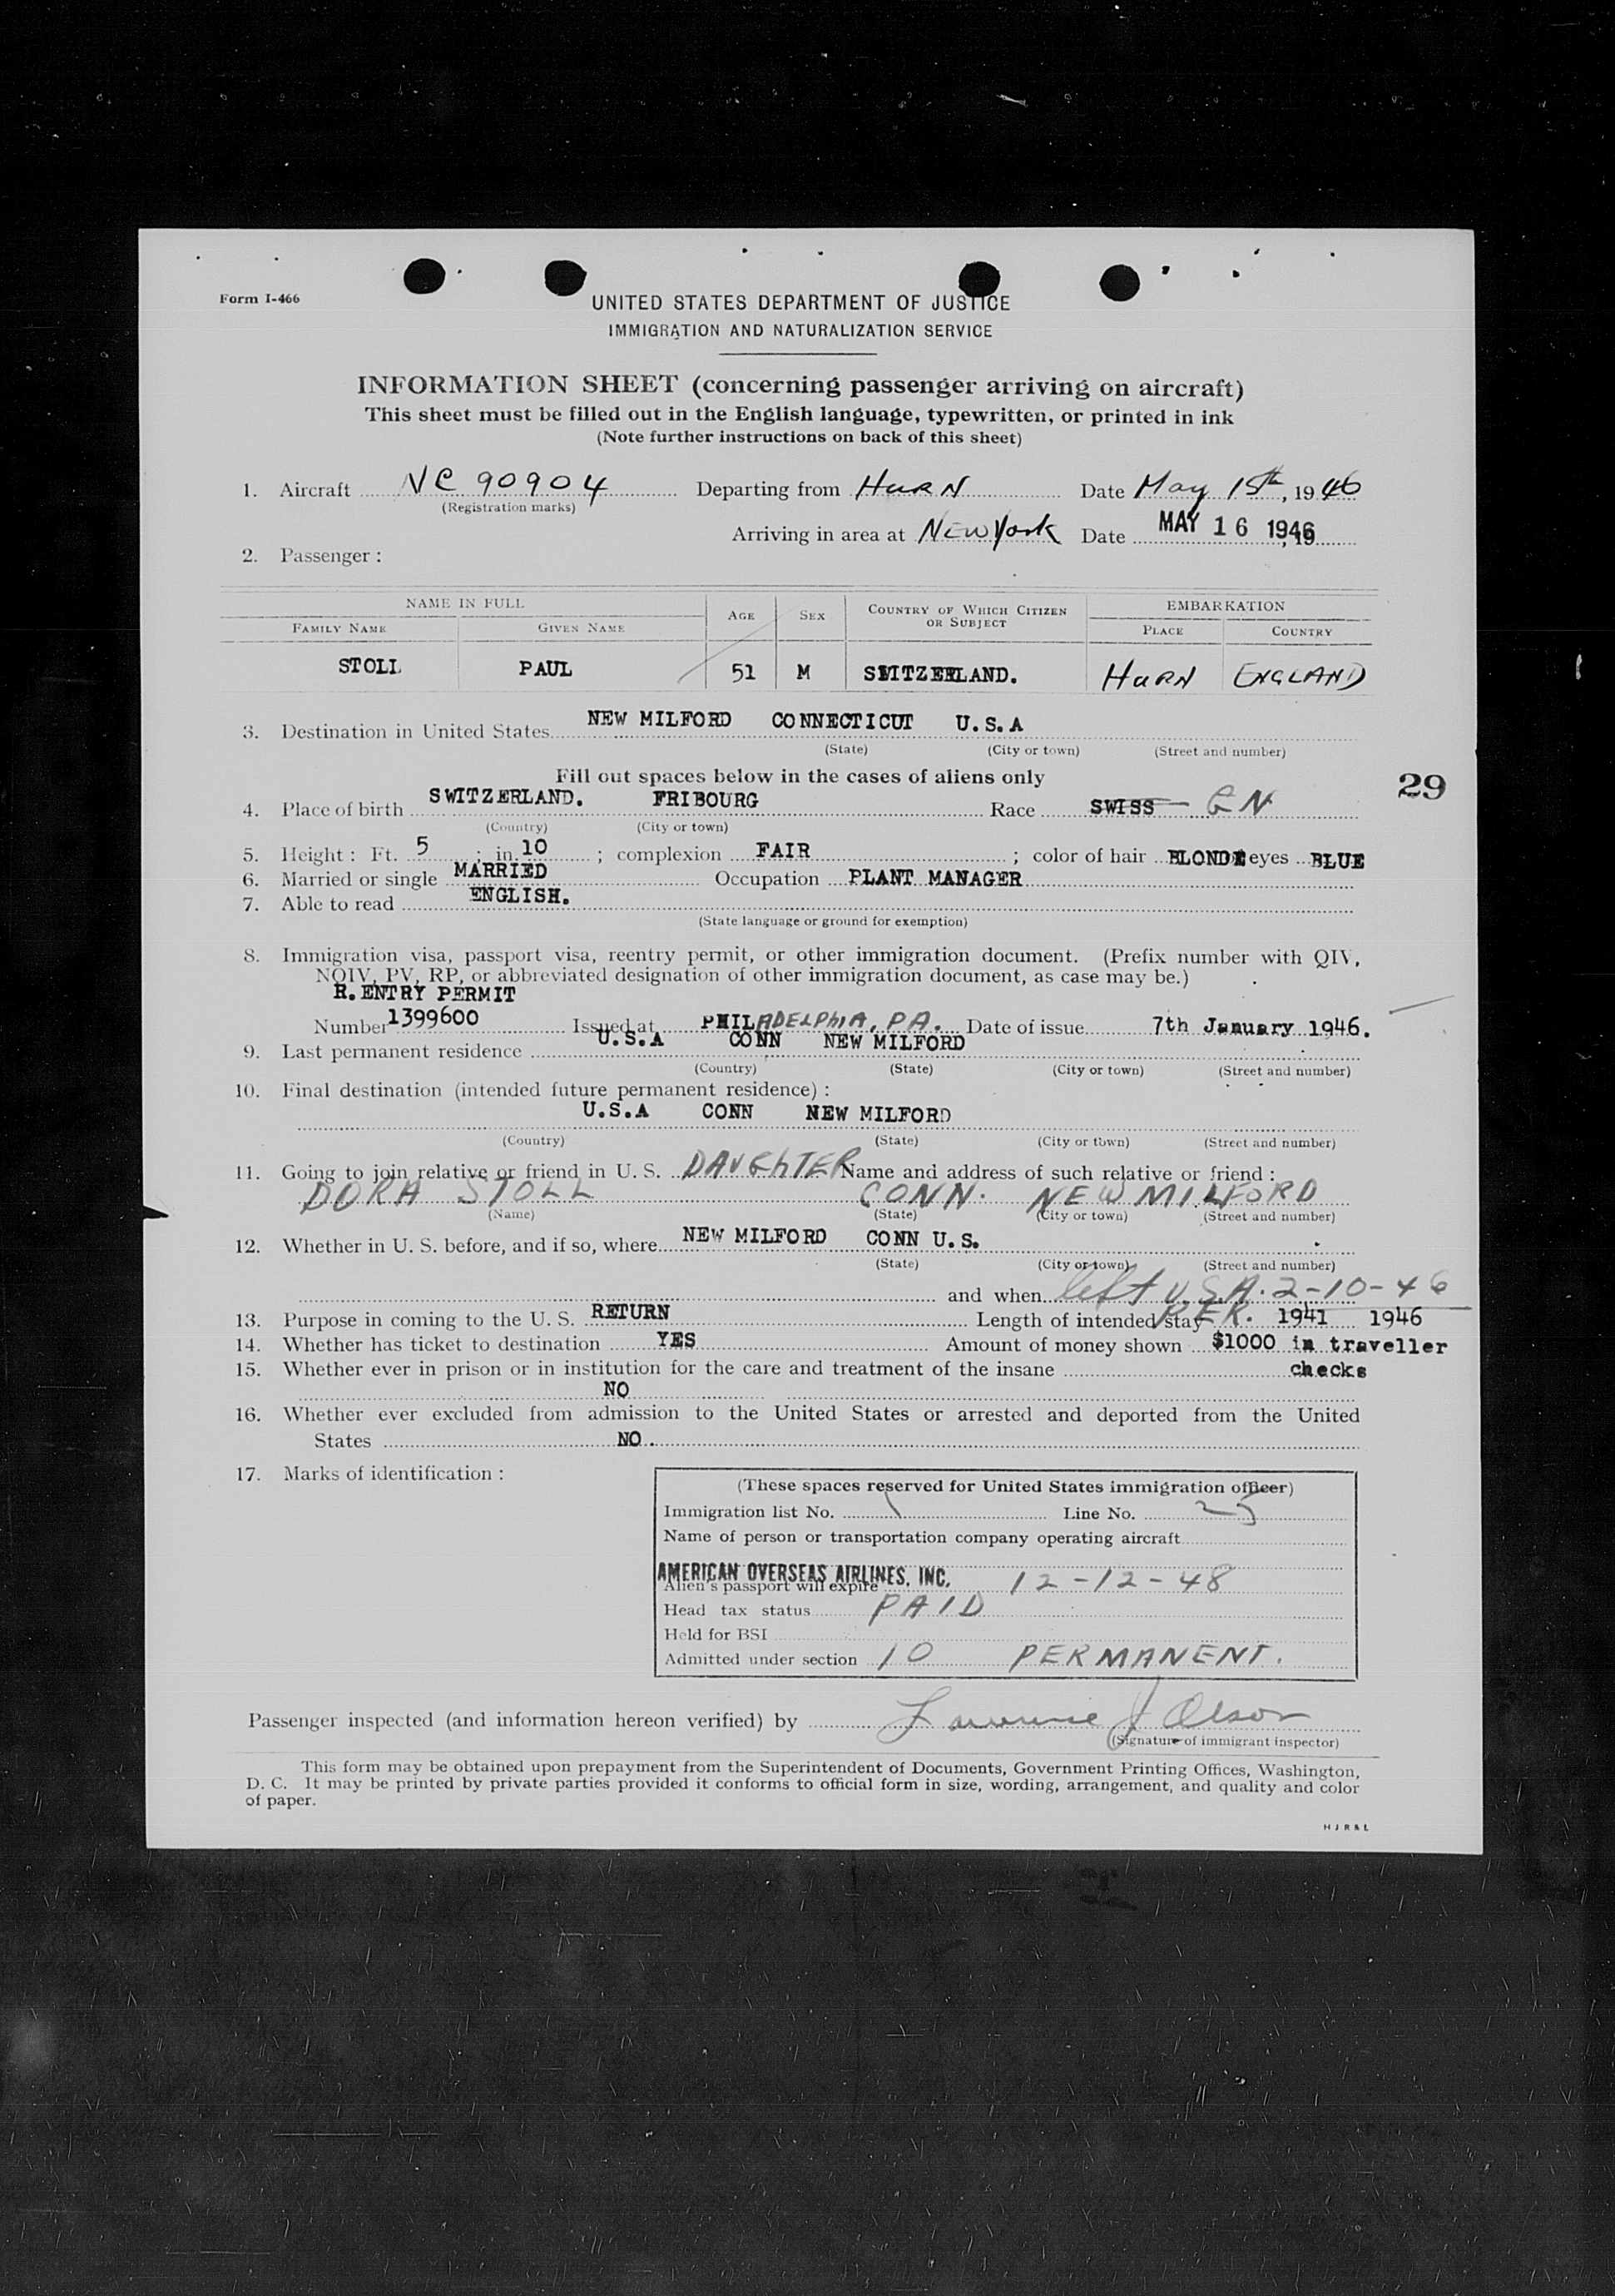 Form I-466
UNITED STATES DEPARTMENT OF JUSTICE
IMMIGRATION AND NATURALIZATION SERVICE
INFORMATION SHEET (concerning passenger arriving on aircraft)
This sheet must be filled out in the English language, typewritten, or printed in ink
(Note further instructions on back of this sheet)
1. Aircraft NC 90904 Departing from HURN Date May 15th, 1946
(Registration marks)
Arriving in area at New York Date MAY 16 1946, 19
2. Passenger :
NAME IN FULL AGE SEX COUNTRY OF WHICH CITIZEN OR SUBJECT EMBARKATION
FAMILY NAME GIVEN NAME PLACE COUNTRY
STOLL PAUL 51 M SWITZERLAND. HURN ENGLAND
3. Destination in United States NEW MILFORD CONNECTICUT U.S.A
(State) (City or town) (Street and number)
Fill out spaces below in the cases of aliens only
29
4. Place of birth SWITZERLAND. FRIBOURG Race SWISS GN
(Country) (City or town)
5. Height : Ft. 5 ; in. 10 ; complexion FAIR ; color of hair BLONDE eyes BLUE
6. Married or single MARRIED Occupation PLANT MANAGER
7. Able to read ENGLISH.
(State language or ground for exemption)
8. Immigration visa, passport visa, reentry permit, or other immigration document. (Prefix number with QIV,
NQIV, PV, RP, or abbreviated designation of other immigration document, as case may be.)
R.ENTRY PERMIT
Number 1399600 Issued at PHILADELPHIA, PA. Date of issue 7th January 1946.
9. Last permanent residence U.S.A CONN NEW MILFORD
(Country) (State) (City or town) (Street and number)
10. Final destination (intended future permanent residence) :
U.S.A CONN NEW MILFORD
(Country) (State) (City or town) (Street and number)
11. Going to join relative or friend in U. S. DAUGHTER Name and address of such relative or friend :
DORA STOLL CONN. NEW MILFORD
(Name) (State) (City or town) (Street and number)
12. Whether in U. S. before, and if so, where NEW MILFORD CONN U.S.
(State) (City or town) (Street and number)
and when left U.S.A. 2-10-46
13. Purpose in coming to the U. S. RETURN Length of intended stay PER. 1941 1946
14. Whether has ticket to destination YES Amount of money shown $1000 in traveller
15. Whether ever in prison or in institution for the care and treatment of the insane checks
NO
16. Whether ever excluded from admission to the United States or arrested and deported from the United
States NO.
17. Marks of identification :
(These spaces reserved for United States immigration officer)
Immigration list No. 1 Line No. 25
Name of person or transportation company operating aircraft
AMERICAN OVERSEAS AIRLINES, INC.
Alien's passport will expire 12-12-48
Head tax status PAID
Held for BSI
Admitted under section 10 PERMANENT.
Passenger inspected (and information hereon verified) by Lawrence J Olson
(Signature of immigrant inspector)
This form may be obtained upon prepayment from the Superintendent of Documents, Government Printing Offices, Washington,
D. C. It may be printed by private parties provided it conforms to official form in size, wording, arrangement, and quality and color
of paper.
H J R & L